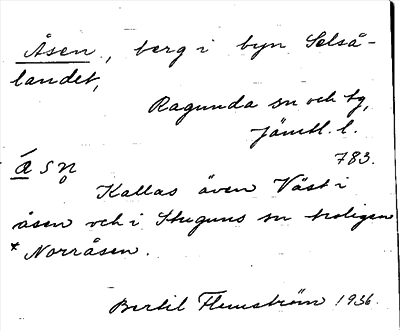 Åsen, berg i byn Selså-
landet,
Ragunda sn och tg,
Jämtl. l.
783.
Kallas även Väst i
åsen och i Stuguns sn troligen
* Norråsen.
Bertil Flemström 1936.